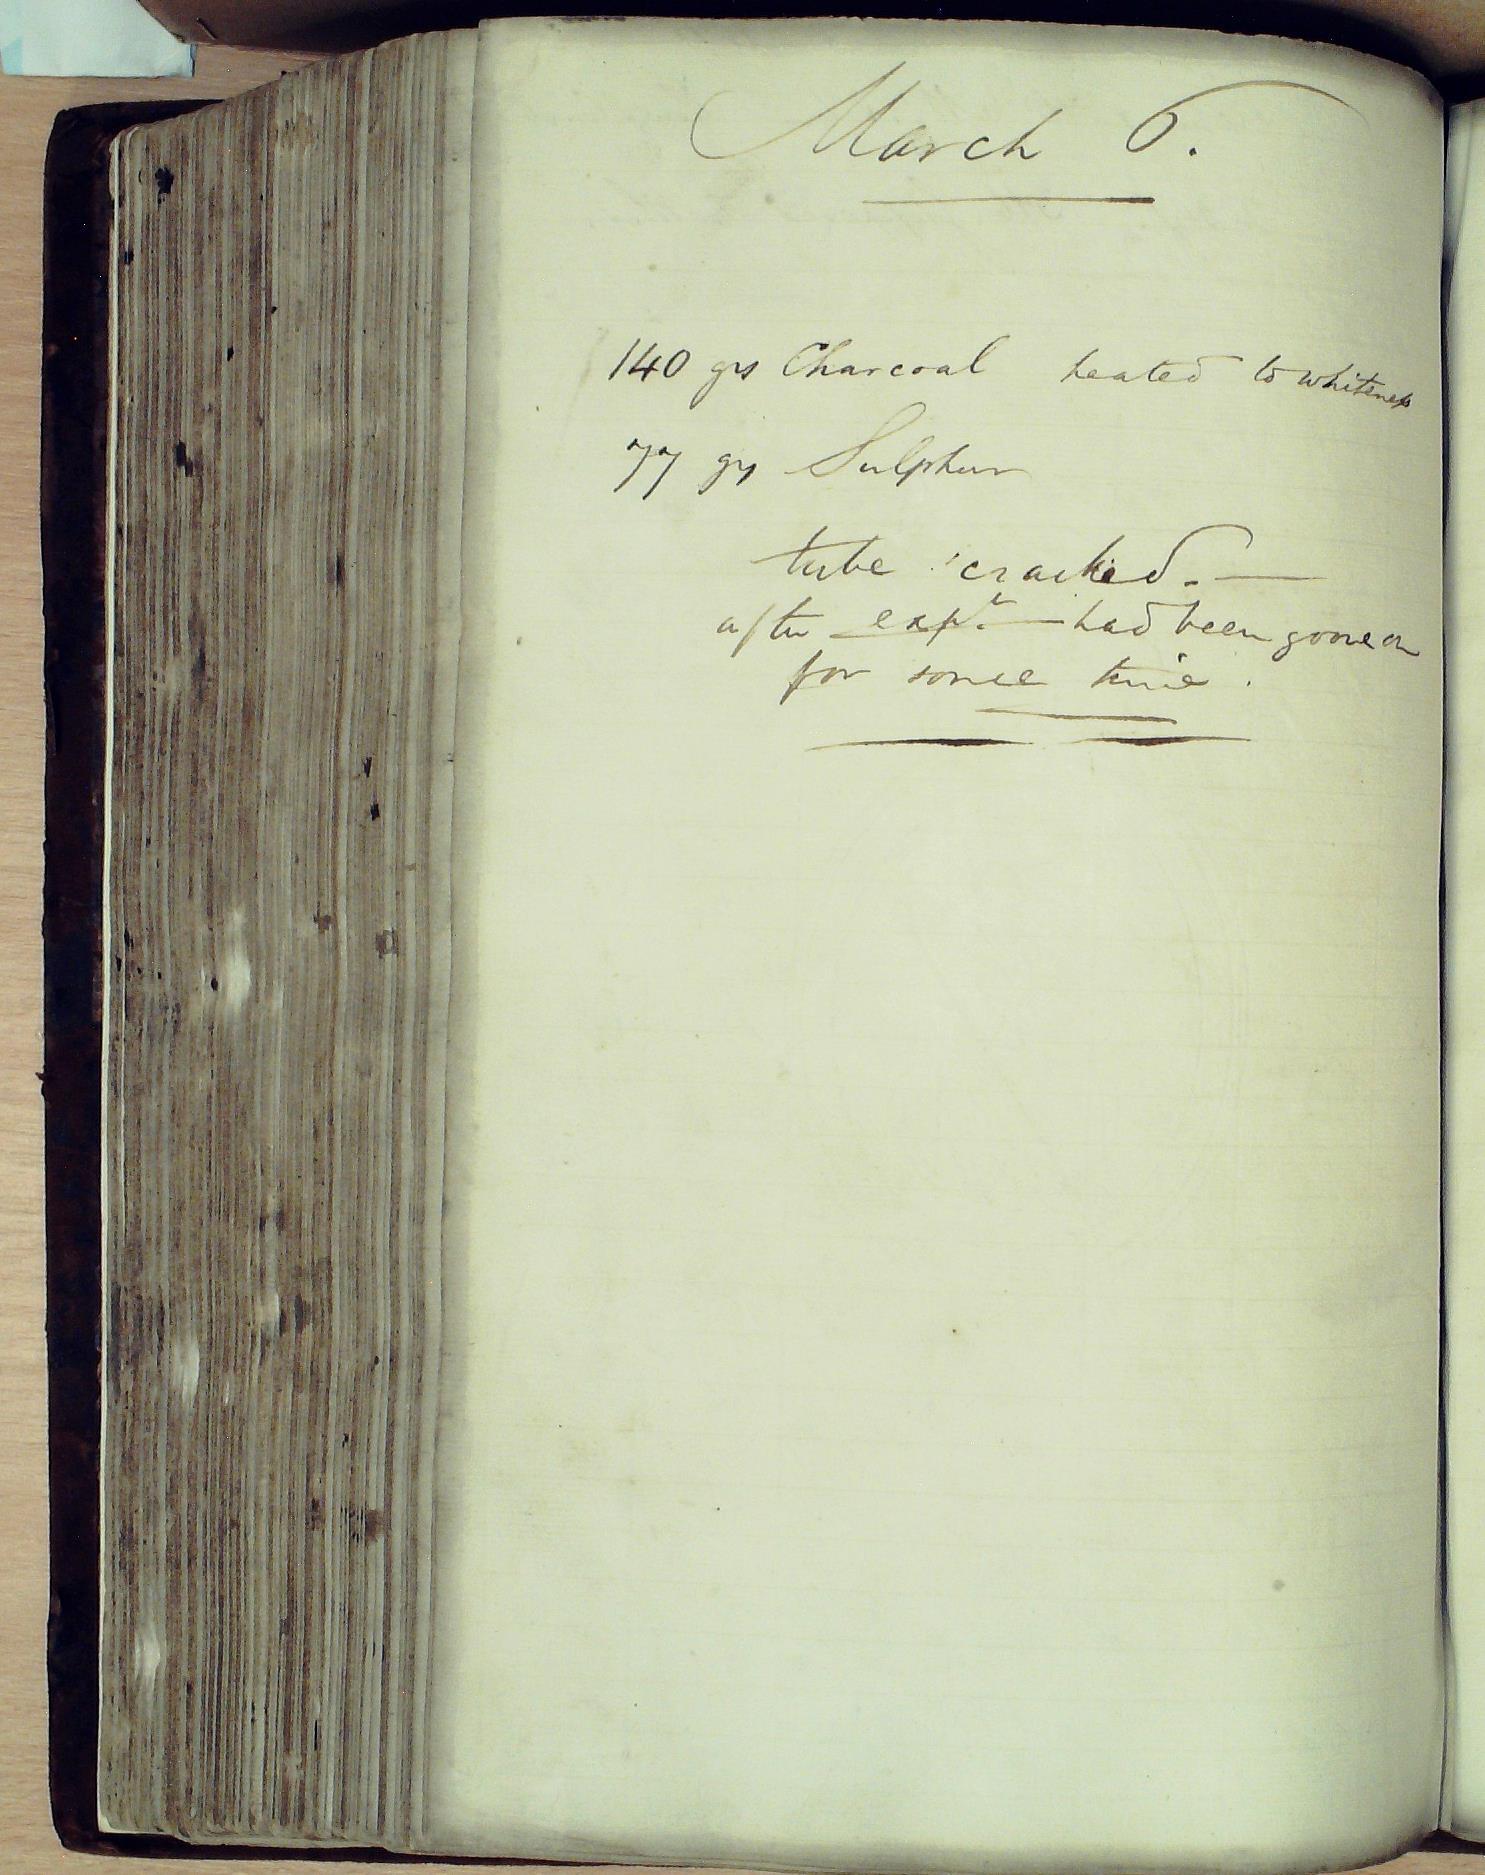 March 6.
140 grs Charcoal heated to whiteness
77 grs Sulphur
tube cracked. —
after expt. had been gone on
for some time.